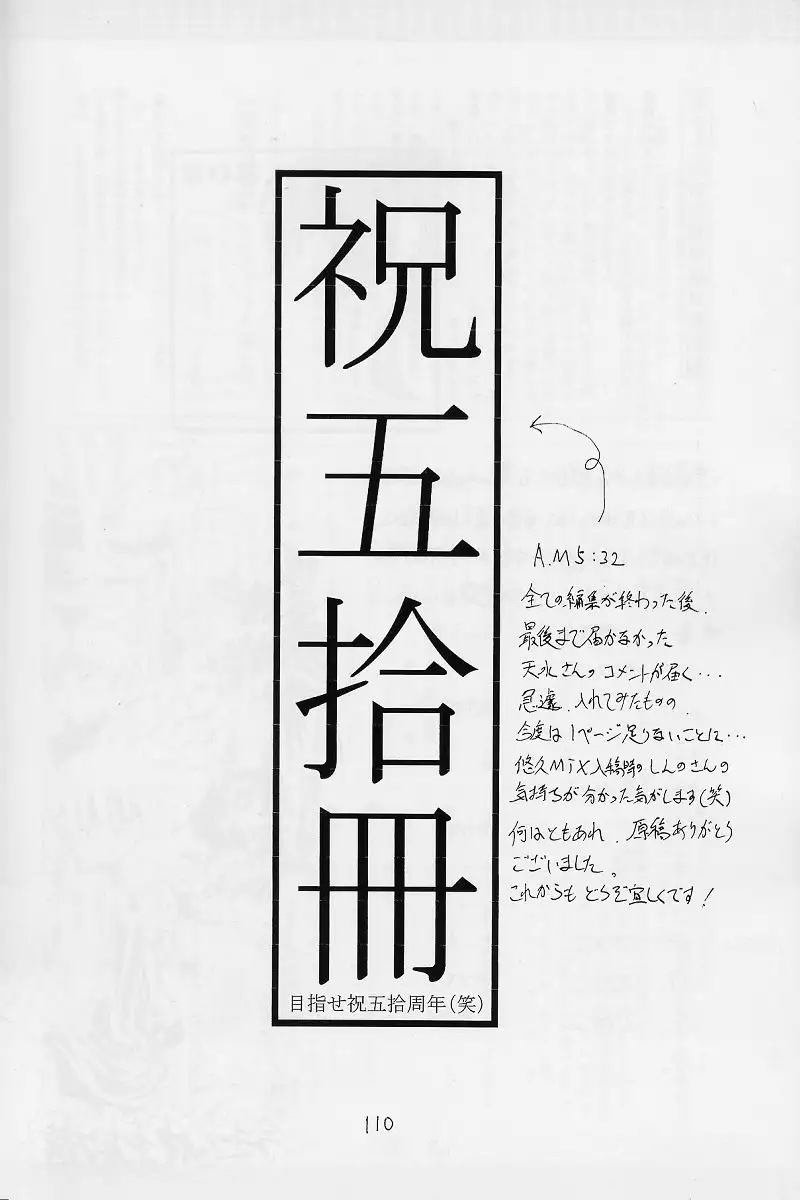 祝五拾冊
目指せ祝五拾周年(笑)
A.M5:32
全ての編集が終わった後、
最後まで届かなかった
天水さんのコメントが届く…
急遽、入れてみたものの、
今度は1ページ足りないことに…
悠久MIX入稿時のしんのさんの
気持ちが分かった気がします(笑)
何はともあれ、原稿ありがとう
ございました。
これからもどうぞ宜しくです!
110